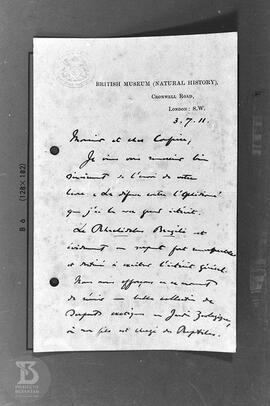 BRITISH MUSEUM (NATURAL HISTORY),
CROMWELL ROAD,
LONDON: S.W.
3.7.11.
Monsieur et cher Confrère,
Je viens vous remercier bien
sincèrement de l'envoi de votre
livre « La défense contre l'Ophidisme
que j'ai lu avec grand intérêt.
Le Rhachidelus Brazili est
évidemment un serpent fort remarquable
et destiné à exciter l'intérêt général.
Nous nous efforçons en ce moment
de réunir une belle collection de
Serpents exotiques au Jardin Zoologique,
où mon fils est chargé des Reptiles.
B 6 (128 × 182)